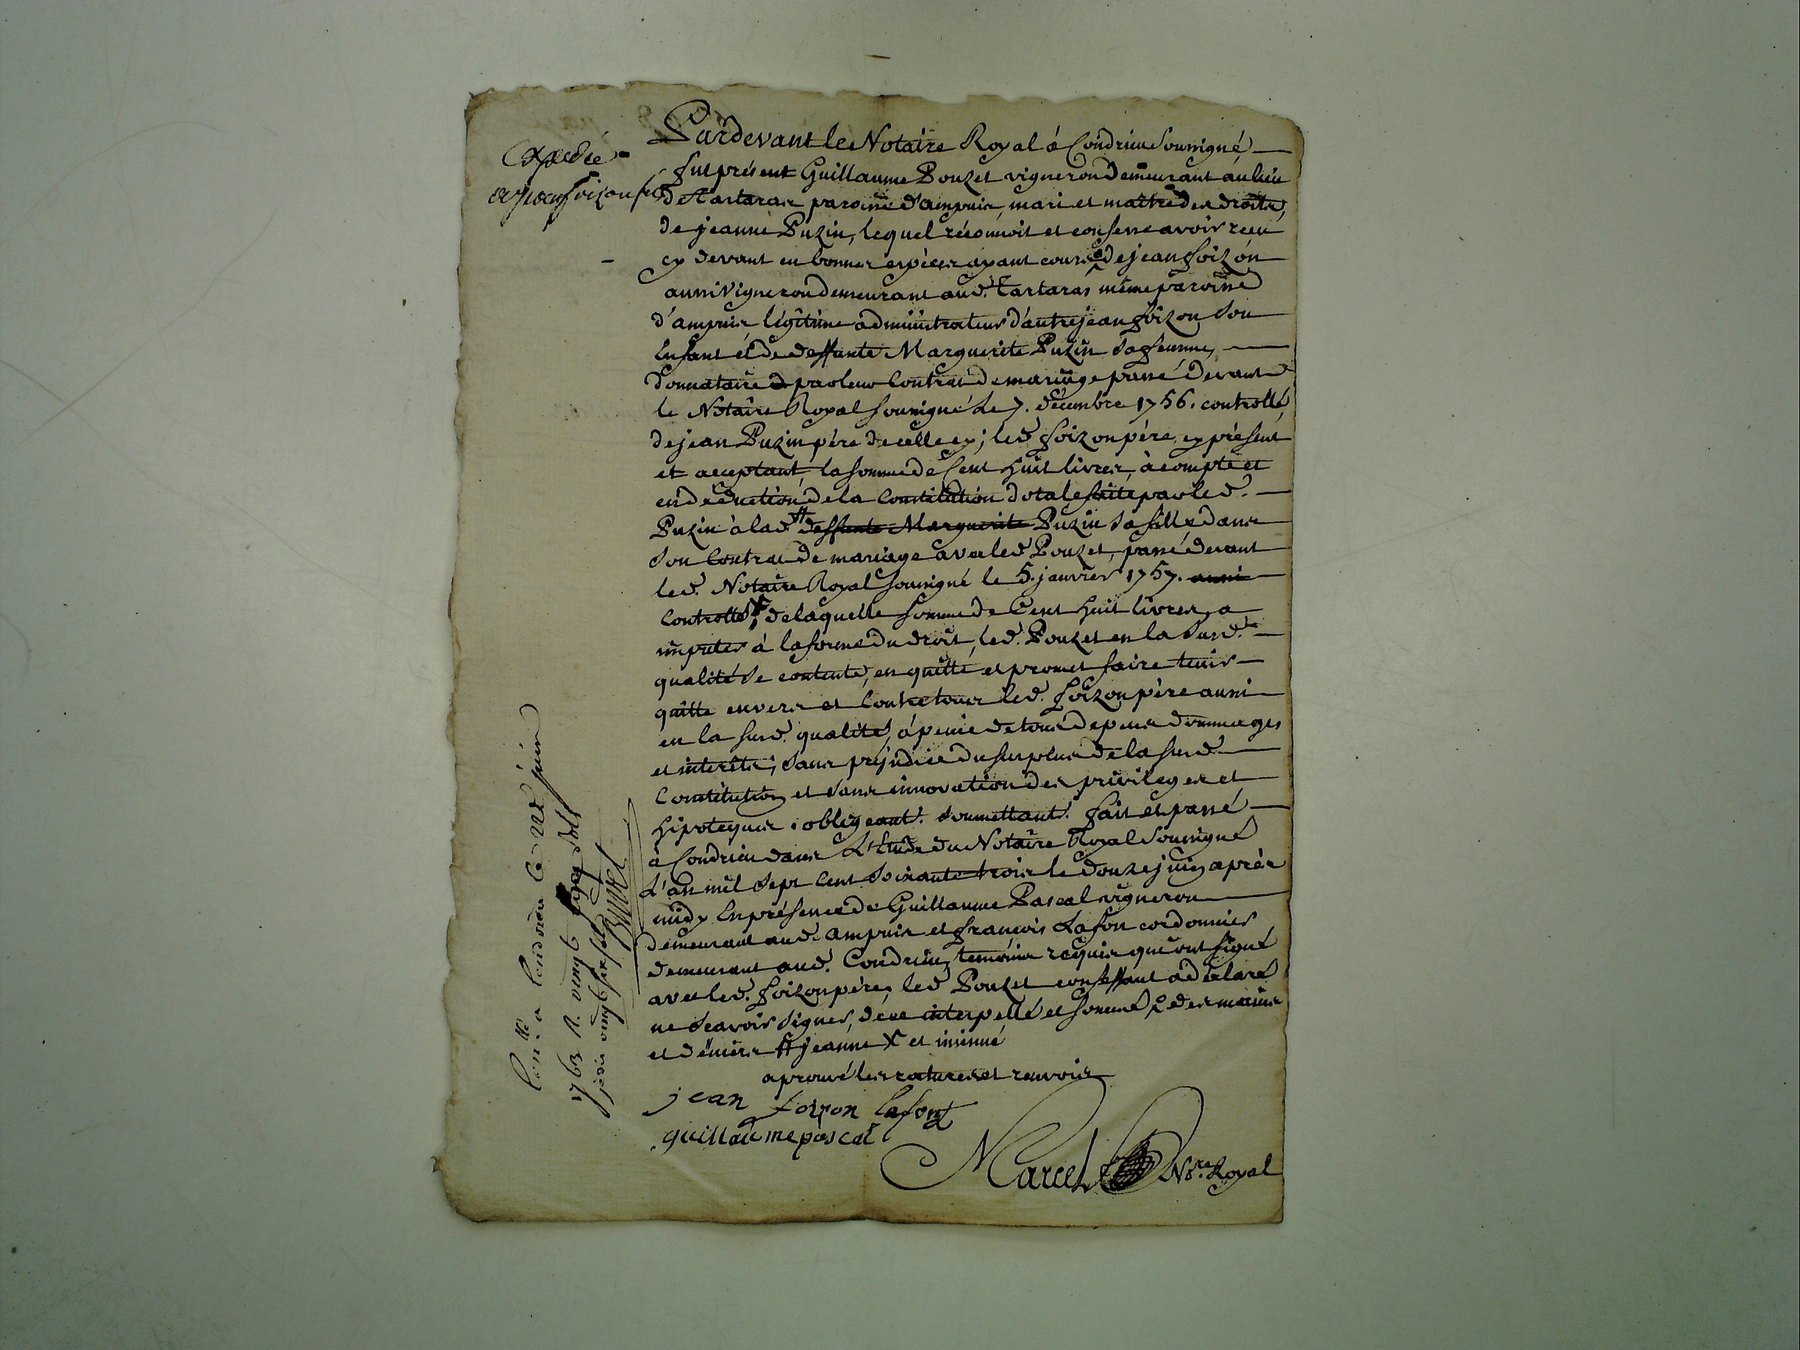 Pardevant le Notaire Royal à Condrieu soussigné
fut présent Guillaume Pouzet vigneron demeurant au lieu
de Tartaras paroisse d'ampuis, mari et maître des droits,
de jeanne Puzin, lequel reconnoit et confesse avoir reçu
cy devant en bonnes espèces ayant cours de jean foizon
aussi vigneron demeurant aud. Tartaras même paroisse
d'ampuis légitime administrateur d'autre jean foizon son
Enfant et de deffunte Marguerite Puzin sa femme,
donnataire par leur Contrat de mariage passé devant
le Notaire Royal soussigné le 7. décembre 1756. controllé,
de jean Puzin père de celle cy; led. foizon père, cy présent
et acceptant, la somme de Cent huit livres, à compte et
en déduction de la Constitution dotale faite par led.
Puzin à lad. # deffunte Marguerite Puzin sa fille dans
son Contrat de mariage avec led. Pouzet, passé devant
led. Notaire Royal soussigné le 5. janvier 1757. aussi
Controllé X; de laquelle somme de Cent huit livres, a
imputer à la forme du droit, led. Pouzet en la susd.
qualité se contente, en quitte et promet faire tenir
quitte envers et Contre tous led. foizon père aussi
en la susd. qualité, à peine de tous depens dommages
et interêts; sans préjudice du surplus de la susd.
Constitution et sans innovation des privileges et
hipoteques. obligeant. soumettant. fait et passé
à Condrieu dans L'Etude du Notaire Royal soussigné
L'an mil sept cent soixante trois le douze juin après
midy En présence de Guillaume Pascal vigneron
demeurant aud. ampuis et françois Lafon cordonnier
demeurant aud. Condrieu, temoins requis qui ont signé
avec led. foizon père, led. Pouzet confessant a déclaré
ne sçavoir signer, de ce interpellé et sommé, des mains
et deniers # jeanne X et insinué
aprouvé les ratures et renvois
jean foizon lafont
guillaume pascal
Marcel Nre. Royal
Expedié
Con.lé a Condrieu le 22e juin
1763 R. vingt